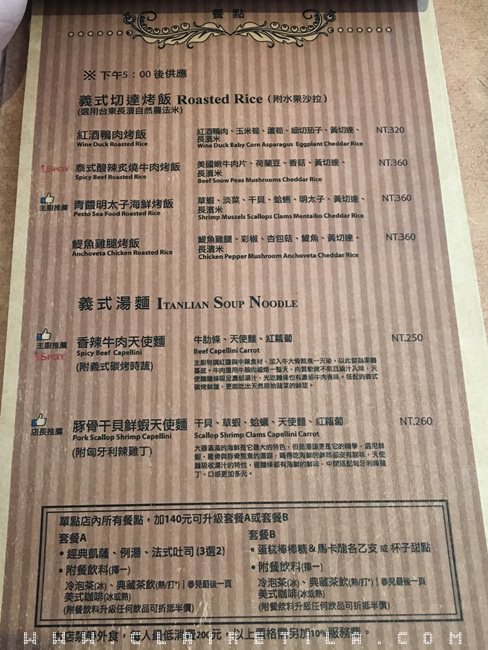 餐點
※ 下午5：00 後供應
義式切達烤飯 Roasted Rice (附水果沙拉)
(選用台東長濱自然農法米)
紅酒鴨肉烤飯 紅酒鴨肉、玉米筍、蘆筍、細切茄子、黃切達、長濱米 NT.320
Wine Duck Roasted Rice Wine Duck Baby Corn Asparagus Eggplant Cheddar Rice
SPCIY 泰式酸辣炙燒牛肉烤飯 美國嫩牛肉片、荷蘭豆、香菇、黃切達、長濱米 NT.360
Spicy Beef Roasted Rice Beef Snow Peas Mushrooms Cheddar Rice
主廚推薦 青醬明太子海鮮烤飯 草蝦、淡菜、干貝、蛤蜊、明太子、黃切達、長濱米 NT.360
Pesto Sea Food Roasted Rice Shrimp Mussels Scallops Clams Mentaiko Cheddar Rice
鯷魚雞腿烤飯 鯷魚雞腿、彩椒、杏包菇、鯷魚、黃切達、長濱米 NT.360
Anchoveta Chicken Roasted Rice Chicken Pepper Mushroom Anchoveta Cheddar Rice
義式湯麵 ITANLIAN SOUP NOODLE
主廚推薦 SPCIY 香辣牛肉天使麵 牛肋條、天使麵、紅蘿蔔 NT.250
Spicy Beef Capellini Beef Capellini Carrot
(附義式碳烤時蔬)
店長推薦 豚骨干貝鮮蝦天使麵 干貝、草蝦、蛤蠣、天使麵、紅蘿蔔 NT.260
Pork Scallop Shrimp Capellini Scallop Shrimp Clams Capellini Carrot
(附匈牙利辣雞丁)
單點店內所有餐點，加140元可升級套餐A或套餐B
套餐A
•經典凱薩、例湯、法式吐司 (3選2)
•附餐飲料(擇一)
冷泡茶(冰)、典藏茶飲(熱/打*) | 參見最後一頁
美式咖啡(冰或熱)
(附餐飲料升級任何飲品可折抵半價)
套餐B
•蛋糕棒棒糖＆馬卡龍各乙支 或 杯子甜點
•附餐飲料(擇一)
冷泡茶(冰)、典藏茶飲(熱/打*) | 參見最後一頁
美式咖啡(冰或熱)
(附餐飲料升級任何飲品可折抵半價)
本店禁帶外食，每人最低消費200元，以上價格需另加10%服務費。